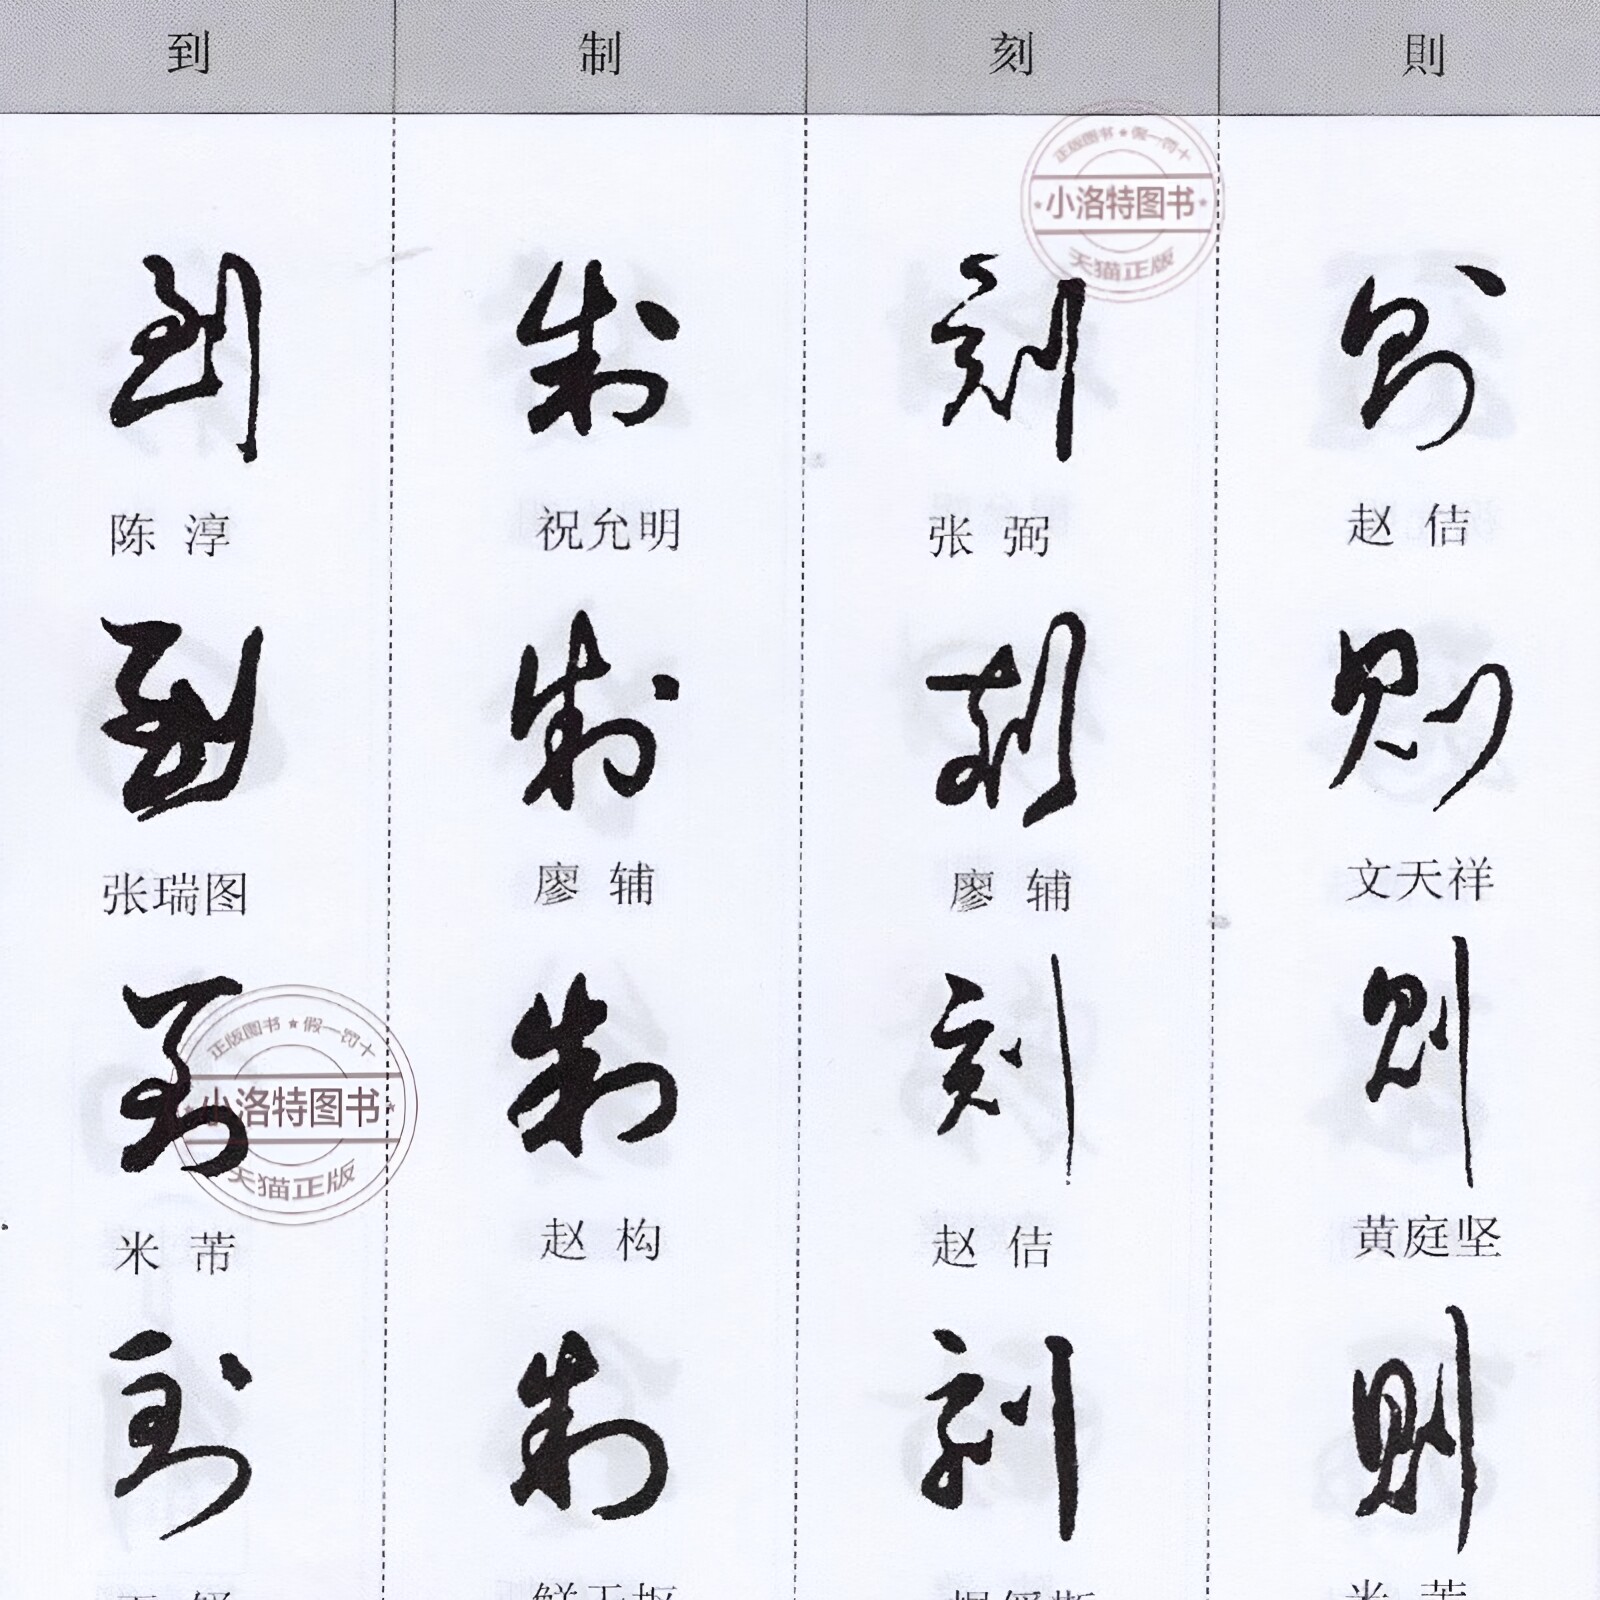 到 制 刻 則
正版图书★假一罚十
小洛特图书
天猫正版
到 制 刻 則
陈淳 祝允明 张弼 赵佶
到 制 刻 則
张瑞图 廖辅 廖辅 文天祥
到 制 刻 則
正版图书★假一罚十
小洛特图书
天猫正版
米芾 赵构 赵佶 黄庭坚
到 制 刻 則
王铎 鲜于枢 米芾